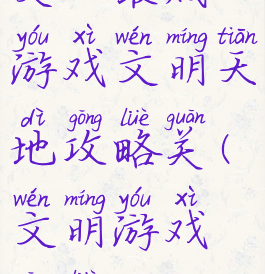 yóu xì wén míng tiān
游戏文明天
dì gōng lüè guān
地攻略关（
wén míng yóu xì
文明游戏